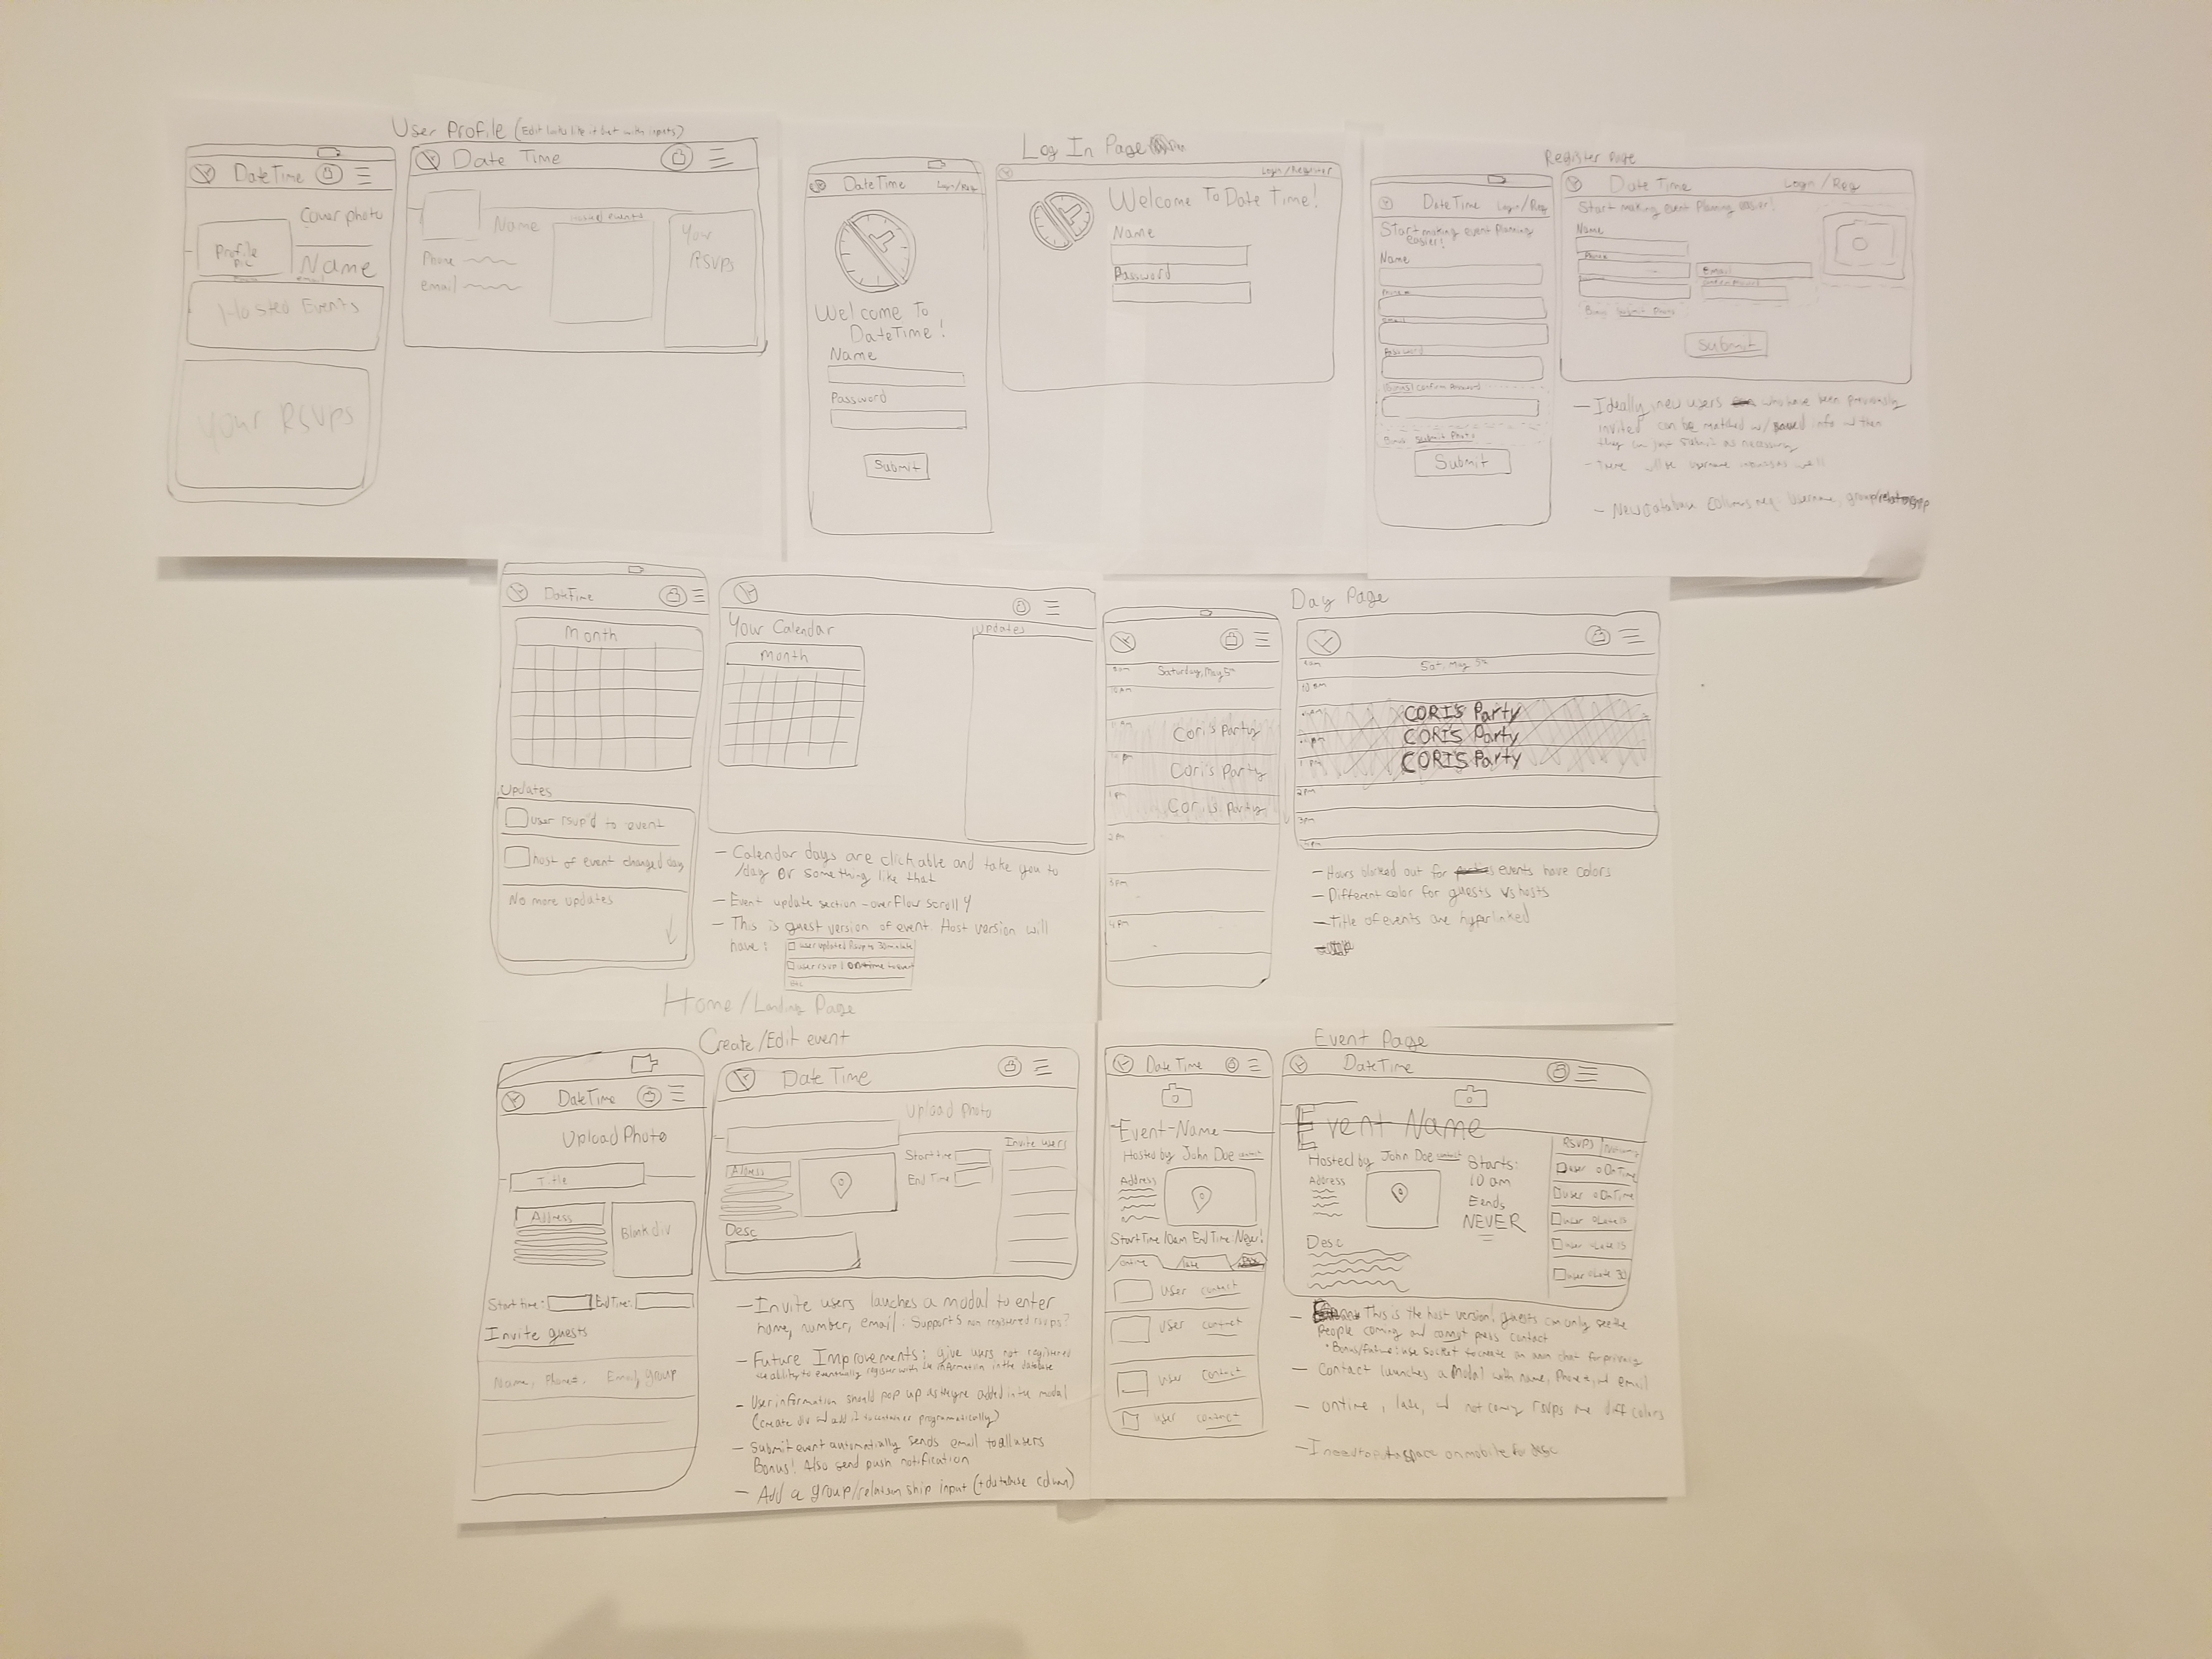 User Profile (Edit looks like it but with inputs)
DateTime
Cover photo
Profile
pic
Name
email
Hosted Events
Your RSVPs
Date Time
Name
Phone
email
Hosted events
Your
RSVPs
Log In Page
DateTime
Login/Reg
Welcome To
DateTime!
Name
Password
Submit
Login/Register
Welcome To Date Time!
Name
Password
Register Page
DateTime Login/Reg
Start making event planning
easier!
Name
Phone #
email
Password
(Bonus) Confirm Password
Bonus Submit Photo
Submit
DateTime Login/Reg
Start making event planning easier!
Name
Phone
Email
Confirm Password
Bonus Submit Photo
Submit
- Ideally, new users who have been previously
invited can be matched w/ info and then
they can just submit as necessary
- There will be username as well
- New database columns req: Username, group
DateTime
Month
Updates
user rsvp'd to event
host of event changed day
No more updates
Your Calendar
Month
Updates
- Calendar days are clickable and take you to
/day or something like that
- Event update section - overflow scroll y
- This is guest version of event Host version will
have:
user updated Rsvp to 30 min late
user rsvp'd ontime to event
Home/Landing Page
Day Page
9am
Saturday, May 5th
10 AM
11 AM
Cori's Party
12 pm
Cori's Party
1 pm
Cori's Party
2 pm
3 pm
4 pm
9am
Sat, May 5th
10 am
CORI'S Party
CORI'S Party
1 pm
CORI'S Party
2 pm
3 pm
4 pm
- Hours blocked out for events have colors
- Different color for guests vs hosts
- Title of events are hyperlinked
Create/Edit event
DateTime
Upload Photo
Title
Address
Blank div
Start time: End Time:
Invite guests
Name, Phone#, Email, group
Date Time
Upload Photo
Address
Start time
End Time
Invite users
Desc
- Invite users lauches a modal to enter
name, number, email. Supports non registered rsvps?
- Future Improvements: give users not registered
the ability to eventually register with the information in the database
- User information should pop up as they're added in the modal
(create div and add it to container programatically)
- Submit event automatically sends email to all users
Bonus! Also send push notification
- Add a group/relationship input (+database column)
Event Page
DateTime
Event-Name
Hosted by John Doe contact
Address
Start Time 10am End Time: Never!
ontime late
user contact
user contact
user contact
user contact
DateTime
Event Name
Hosted by John Doe contact
Address
Starts:
10 am
Eends
NEVER
Desc
RSVPS
user OnTime
user OnTime
user Late 15
user Late 15
user Late 30
- This is the host version! guests can only see the
people coming and cannot press contact
*Bonus/future: use socket to create an own chat for privacy
- Contact launches a modal with name, Phone #, and email
- ontime, late, and not coming rsvps are diff colors
- I need to put a space on mobile for desc